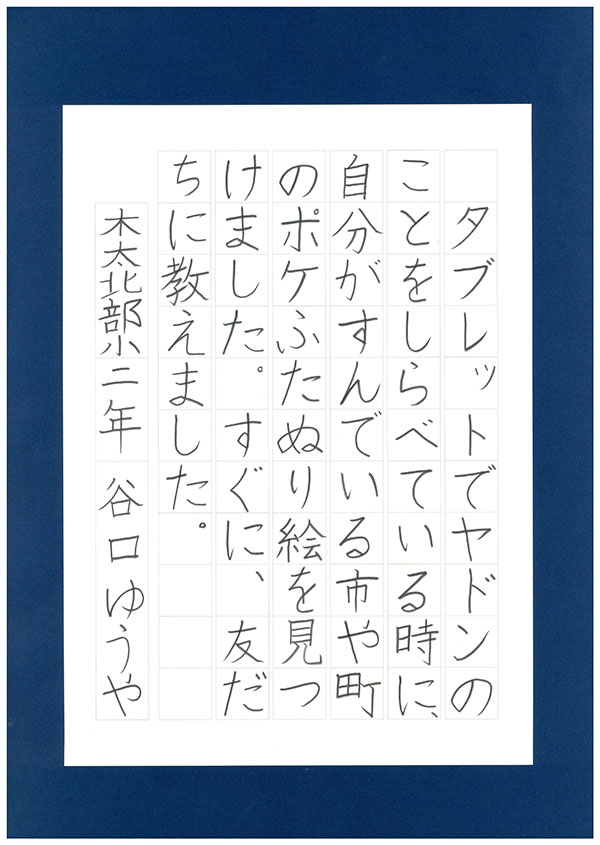 タブレットでヤドンの
ことをしらべている時に、
自分がすんでいる市や町
のポケふたぬり絵を見つ
けました。すぐに、友だ
ちに教えました。
木太北部小二年 谷口ゆうや